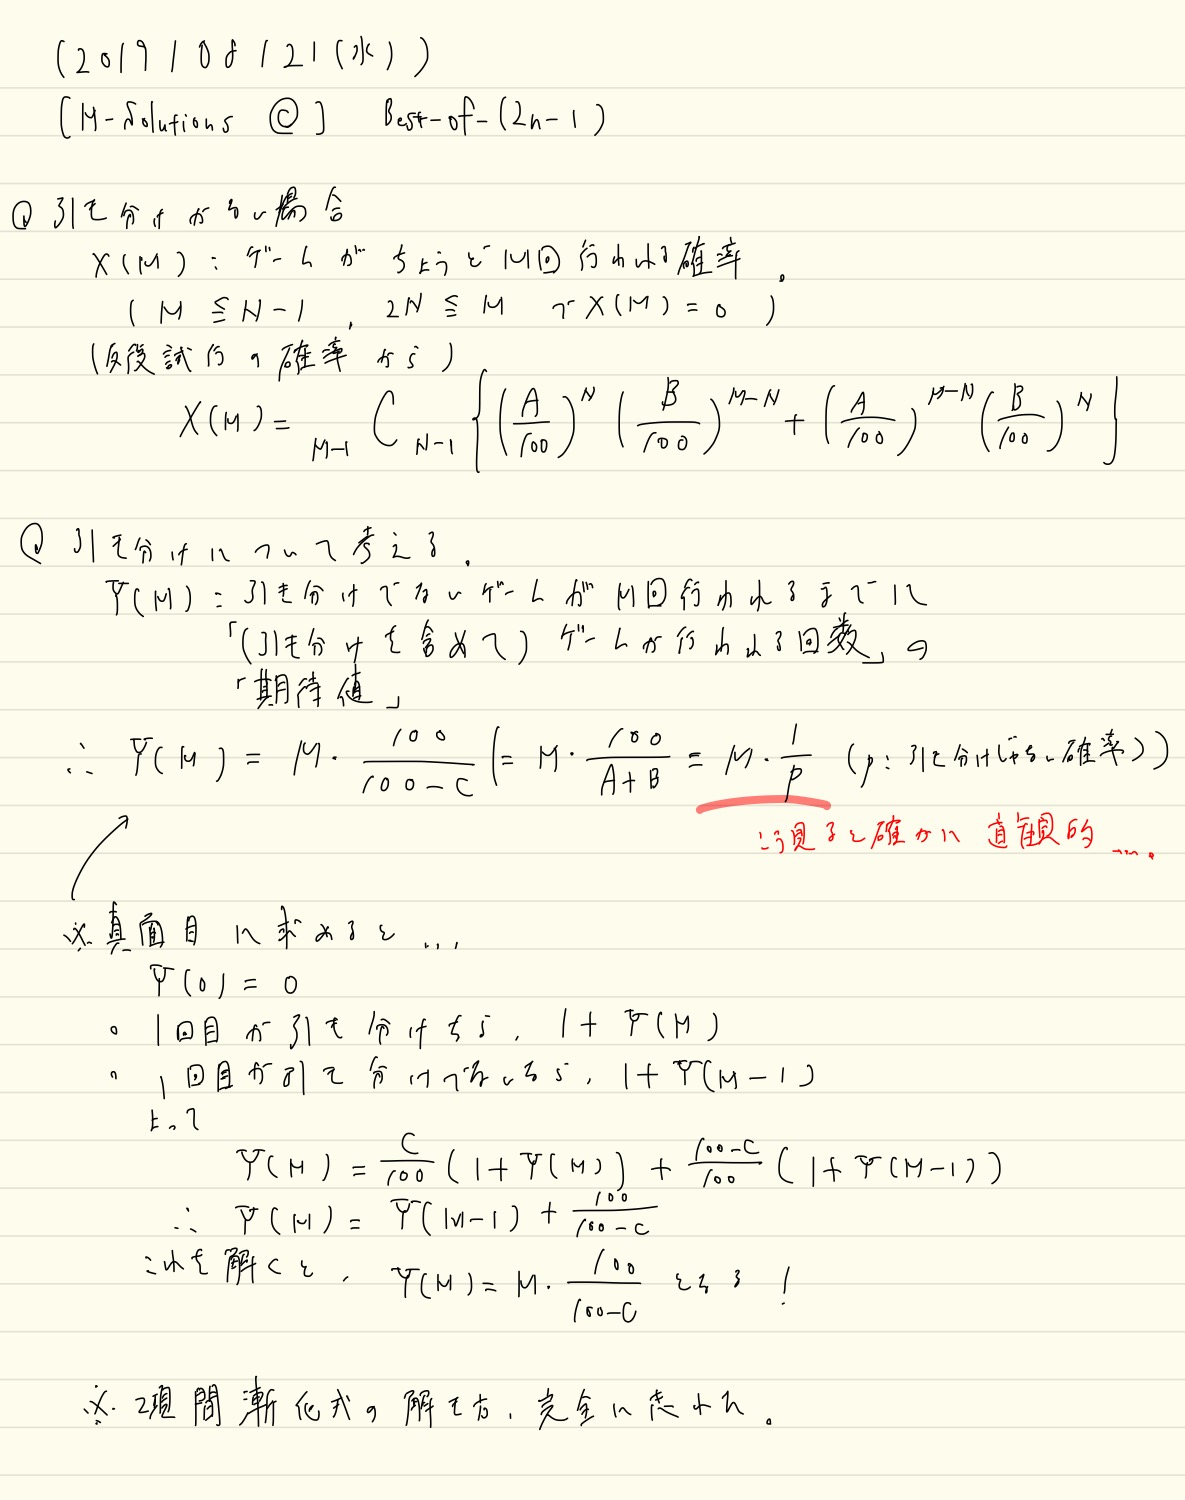 (2019/08/21(水))
[M-Solutions Ⓒ] Best-of-(2n-1)
① 引き分けがない場合
X(M): ゲームがちょうどM回行われる確率.
(M ≦ N-1, 2N ≦ M で X(M) = 0)
(反復試行の確率から)
X(M) = _{M-1} C _{N-1} { (A/100)^N (B/100)^{M-N} + (A/100)^{M-N} (B/100)^N }
② 引き分けについて考える.
Y(M): 引き分けでないゲームがM回行われるまでに
「(引き分けを含めて) ゲームが行われる回数」の
「期待値」
∴ Y(M) = M・100/(100-C) (= M・100/(A+B) = M・1/p (p: 引き分けじゃない確率))
こう見ると確かに直観的....
※真面目に求めると...
Y(0) = 0
・1回目が引き分けなら, 1 + Y(M)
・1回目が引き分けでないなら, 1 + Y(M-1)
よって
Y(M) = C/100 (1 + Y(M)) + (100-C)/100 (1 + Y(M-1))
∴ Y(M) = Y(M-1) + 100/(100-C)
これを解くと, Y(M) = M・100/(100-C) となる!
※ 2項間漸化式の解き方, 完全に忘れた.